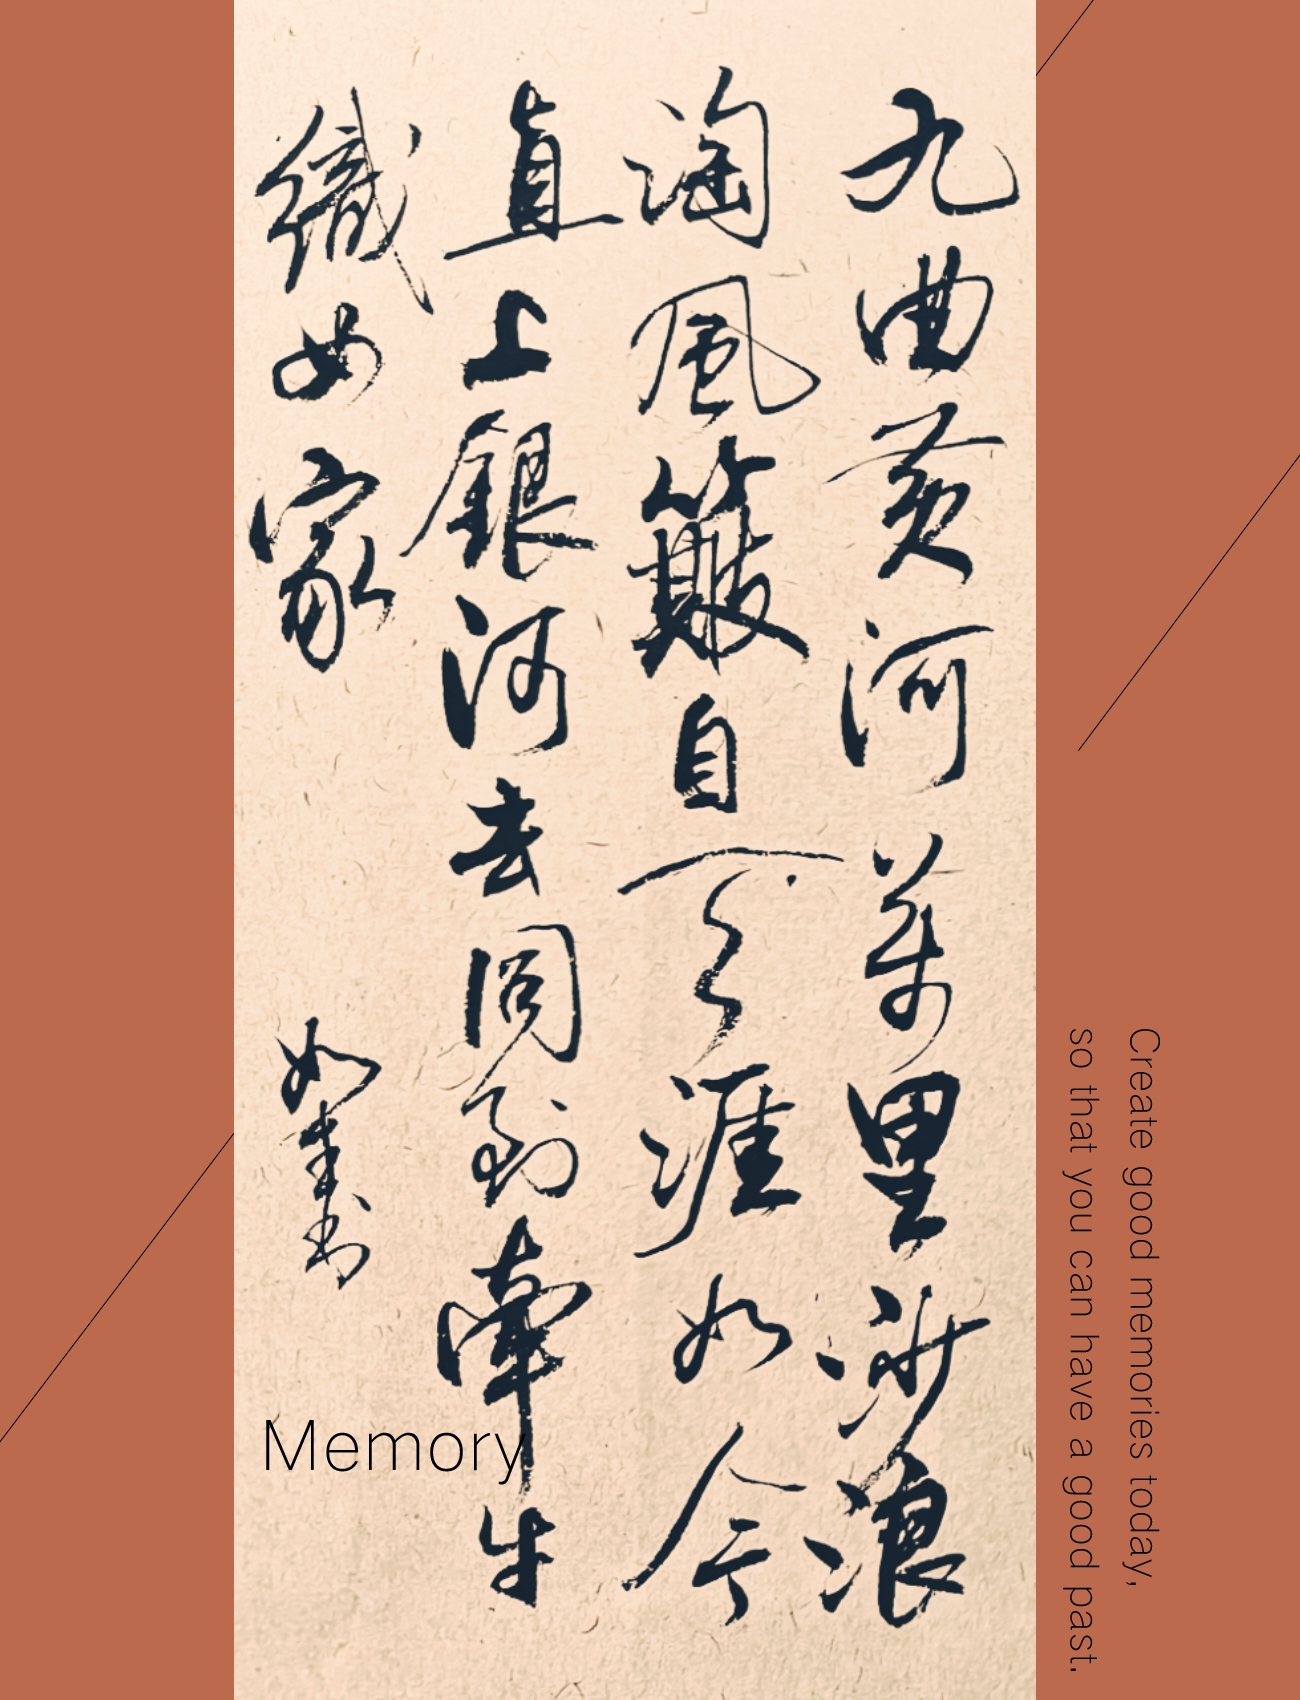 九曲黃河萬里沙浪
淘風簸自天涯如今
直上銀河去同到牽牛
織女家
如
Memory
Create good memories today,
so that you can have a good past.